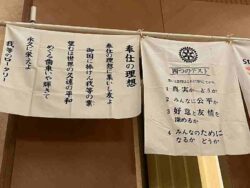 奉仕の理想
奉仕の理想に集いし友よ
御国に捧げん我等の業
望むは世界の久遠の平和
めぐる歯車いや輝きて
永久に栄えよ
我等のロータリー
四つのテスト
1 真実かどうか
2 みんなに公平か
3 好意と友情を
深めるか
4 みんなのために
なるかどうか